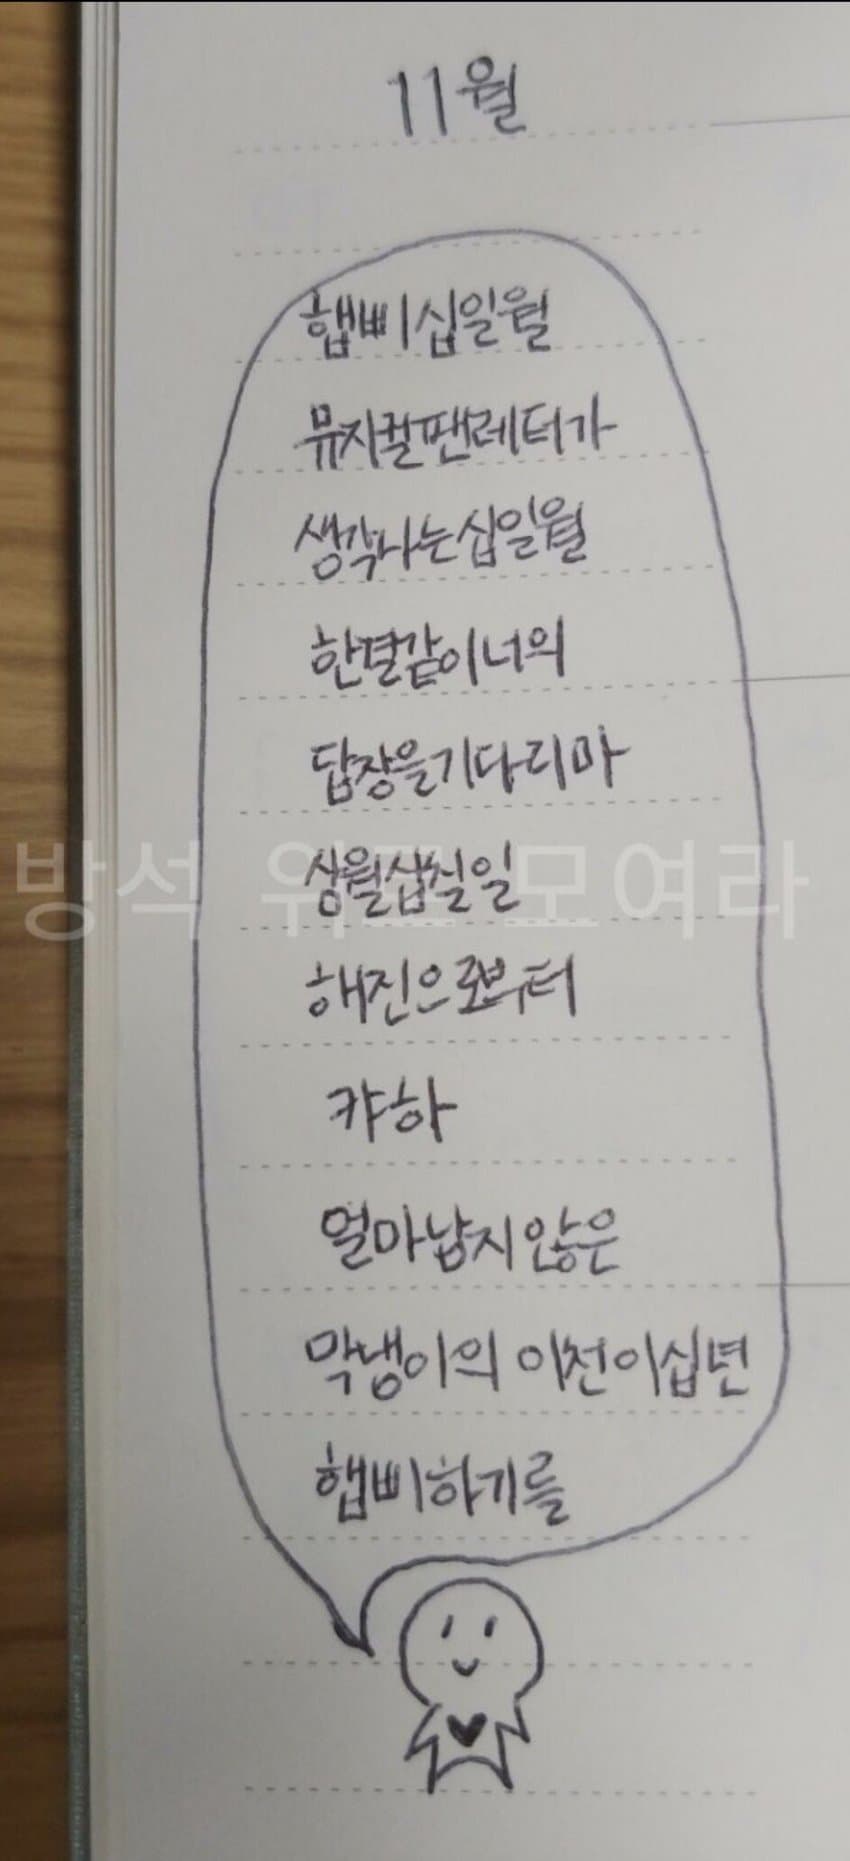 11월
햅삐십일월
뮤지컬팬레터가
생각나는십일월
한결같이너의
답장을기다리마
방석 위로 모여라
상월삽실일
해진으로부터
캬하
얼마남지않은
막냉이의 이천이십년
햅삐하기를